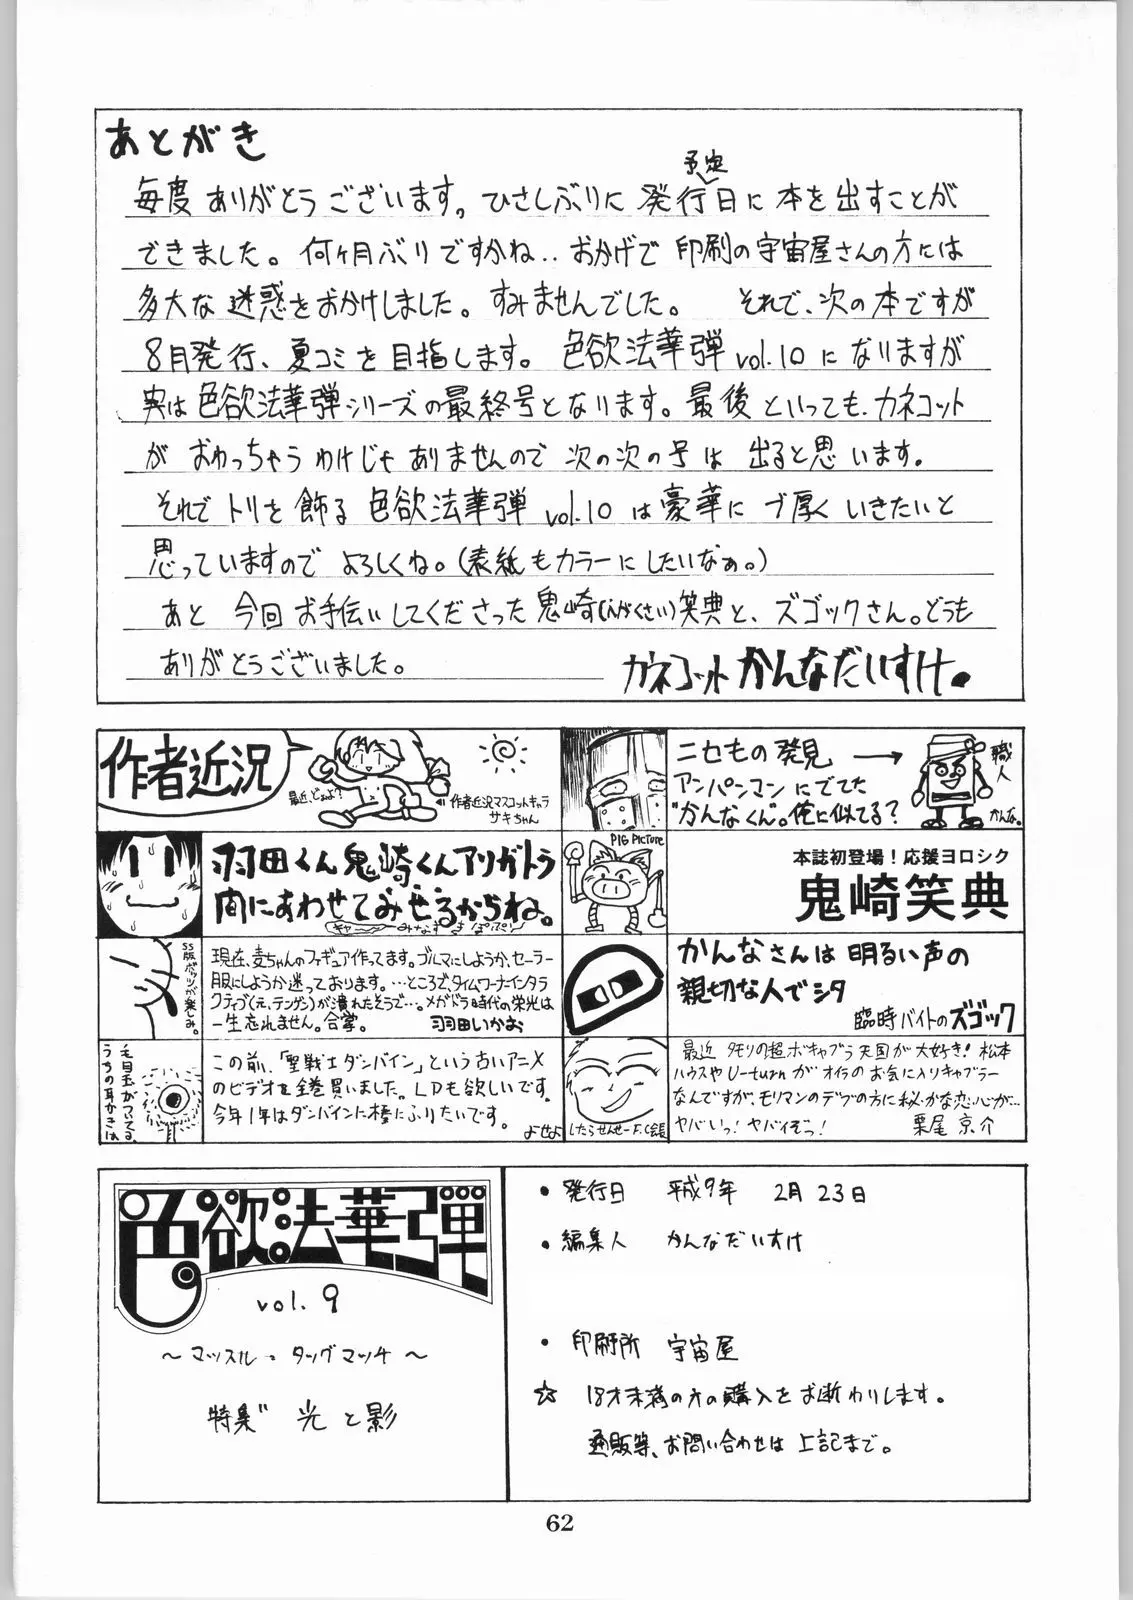 あとがき
予定
毎度ありがとうございます。ひさしぶりに発行日に本を出すことが
できました。何ヶ月ぶりですかね‥おかげで印刷の宇宙屋さんの方には
多大な迷惑をおかけしました。すみませんでした。 それで、次の本ですが
8月発行、夏コミを目指します。色欲法華弾vol.10になりますが
実は色欲法華弾シリーズの最終号となります。最後といっても、カネコット
がおわっちゃうわけじゃありませんので次の次の号は出ると思います。
それでトリを飾る色欲法華弾vol.10は豪華にブ厚くいきたいと
思っていますのでよろしくね。(表紙もカラーにしたいなぁ。)
あと今回お手伝いしてくださった鬼崎(えがくさい)笑典と、ズゴックさん。どうも
ありがとうございました。
カネコット かんなだいすけ。
作者近況
最近、どぉよ?
作者近況マスコットキャラ
サキちゃん
ニセもの発見
アンパンマンにでてた
"かんなくん"。俺に似てる?
職人
かんな。
羽田くん鬼崎くんアリガトラ
間にあわせてみせるからね。
PIG PICTURE
本誌初登場!応援ヨロシク
鬼崎笑典
SS版ポリッツが楽しみ。
現在、麦ちゃんのフィギュア作ってます。ブルマにしようか、セーラー
服にしようか迷っております。…ところで、タイムワーナーインタラ
クティブ(くえ、テンゲン)が潰れたそうで…。メガドラ時代の栄光は
一生忘れません。合掌。 羽田いかお
かんなさんは明るい声の
親切な人でシタ
臨時バイトのズゴック
うちの耳かきは
毛目玉がついてる。
この前、「聖戦士ダンバイン」という古いアニメ
のビデオを全巻買いました。LDも欲しいです。
今年1年はダンバインに棒にふりたいです。
よせよ
したらせんせーF.C会長
最近タモリの超ボキャブラ天国が大好き!松本
ハウスやU-turnがオイラのお気に入りキャブラー
なんですが、モリマンのデブの方に秘かな恋心が…
ヤバいっ!ヤバイぞっ! 栗尾京介
色欲法華弾
vol.9
～マッスル・タッグマッチ～
特集 光と影
・発行日 平成9年 2月23日
・編集人 かんなだいすけ
・印刷所 宇宙屋
☆ 18才未満の方の購入をお断わりします。
通販等、お問い合わせは上記まで。
62